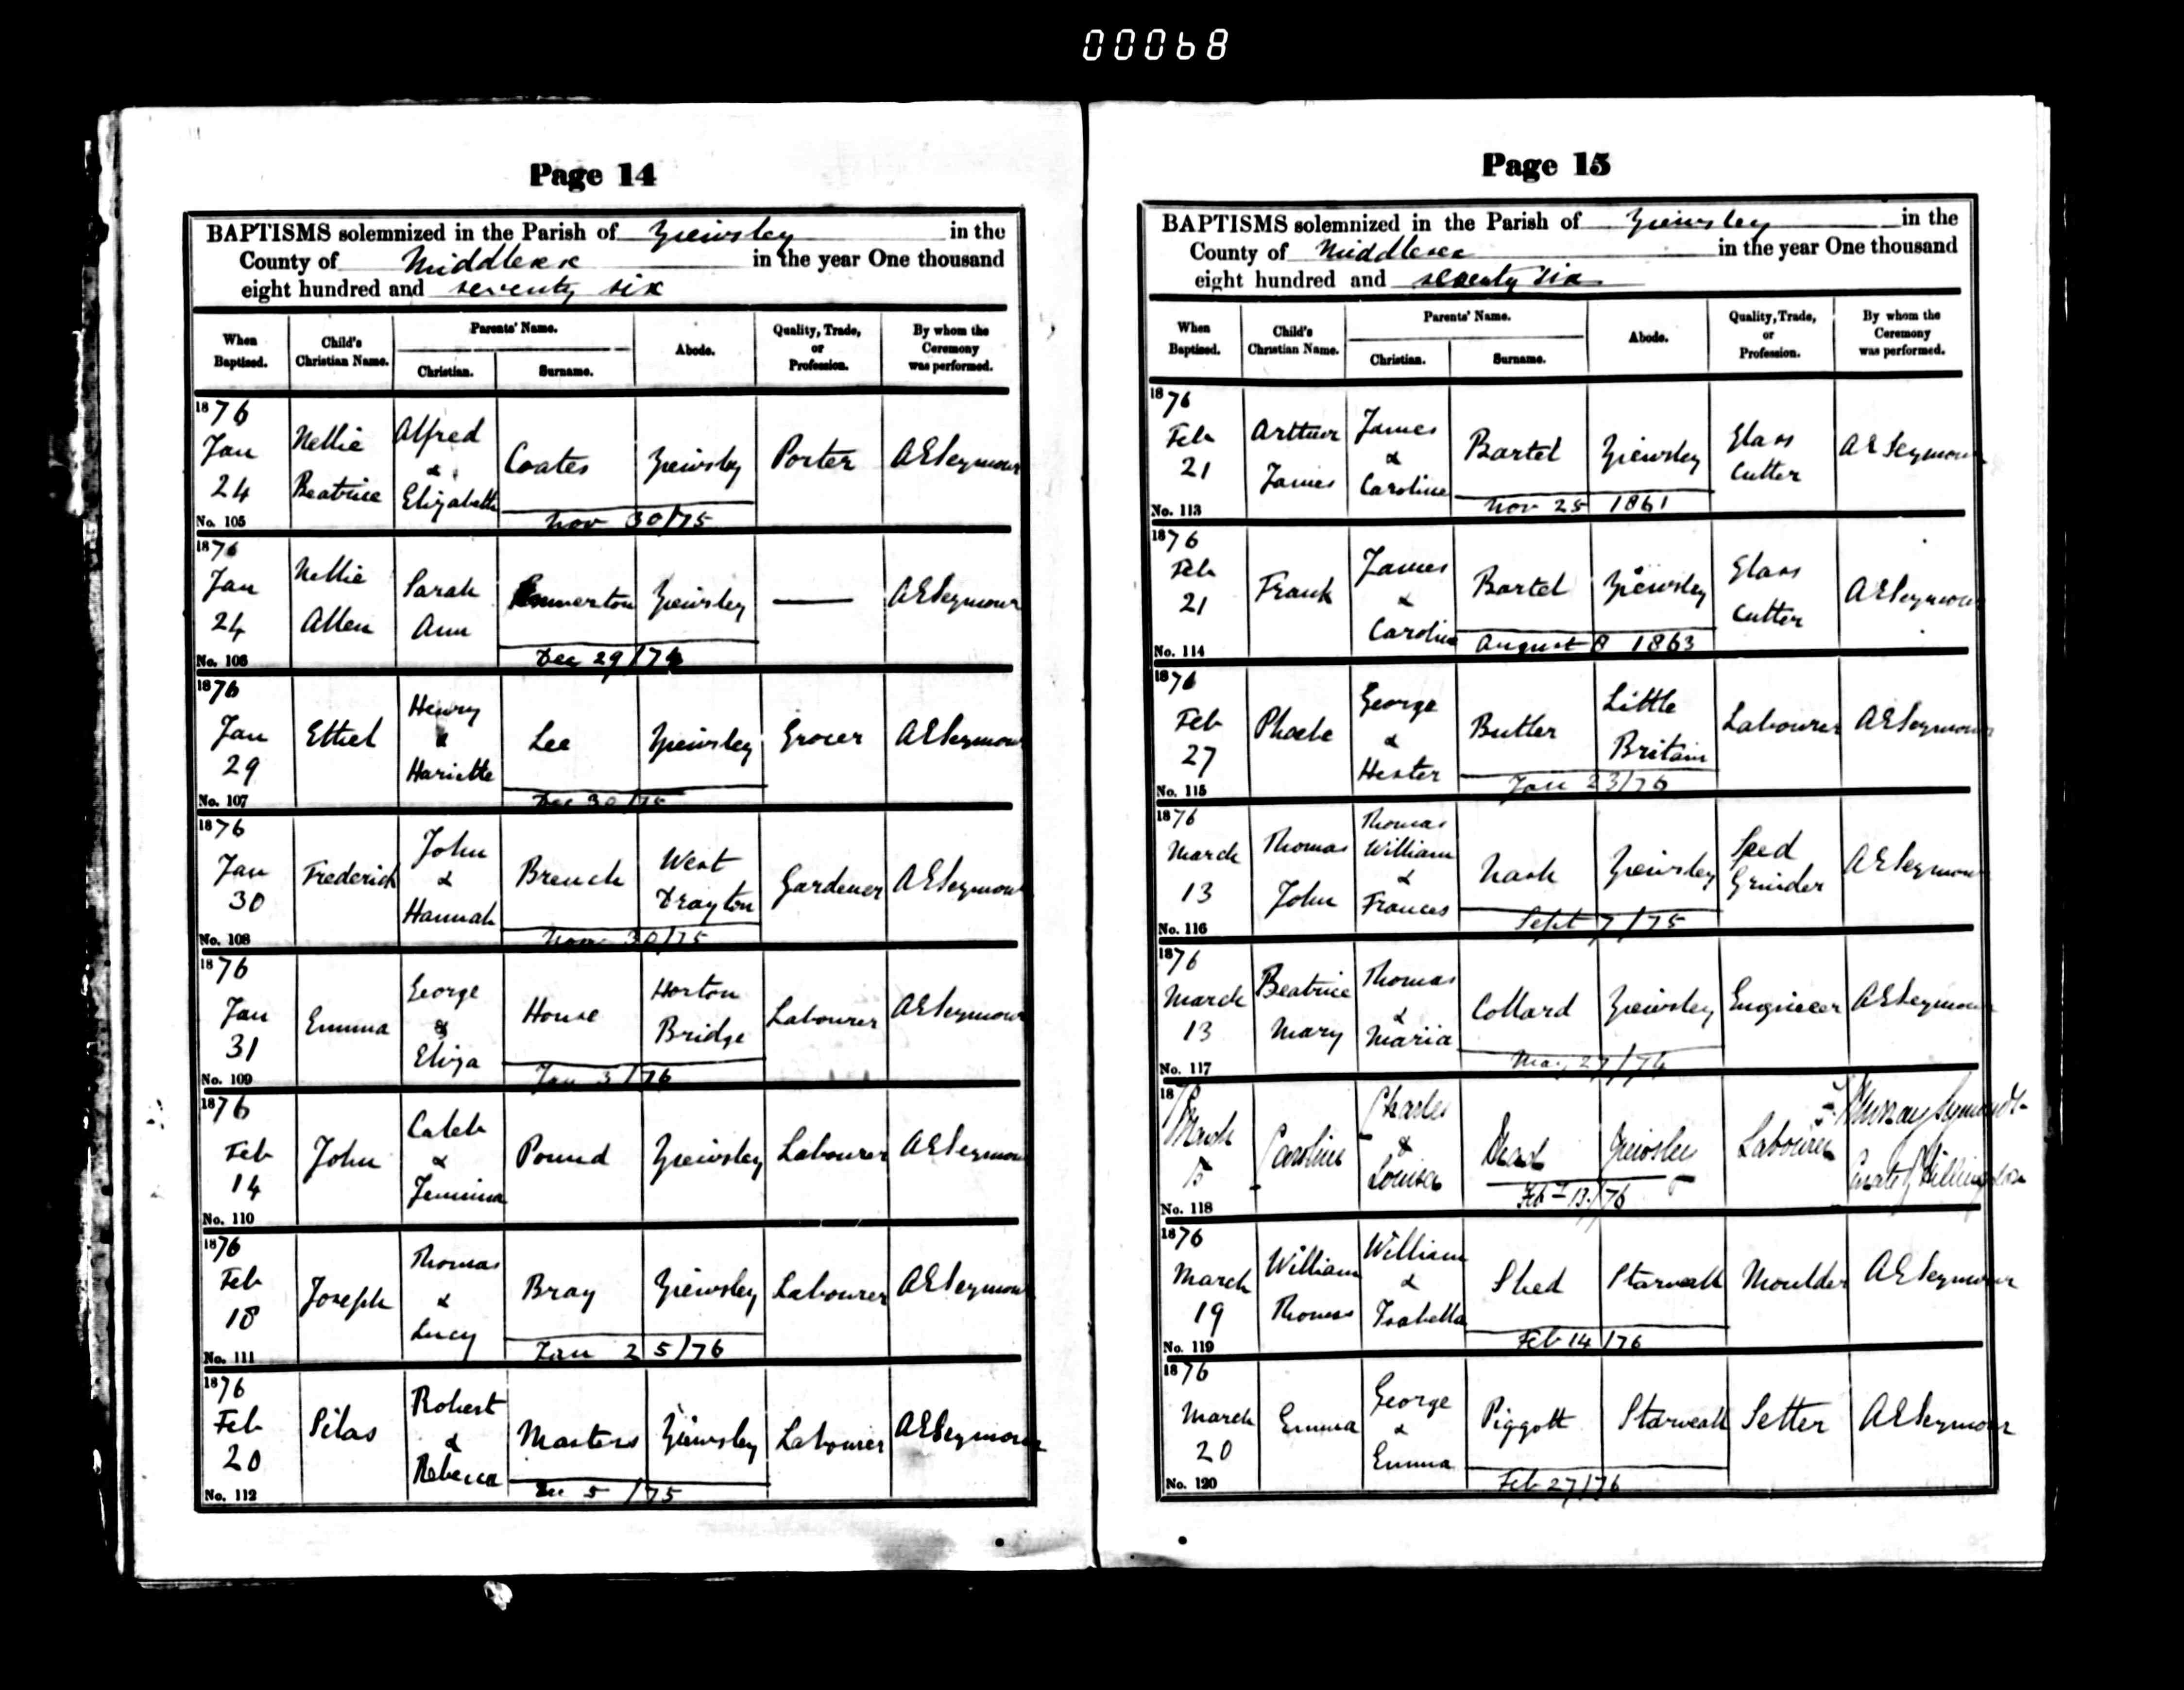 000068
Page 14
BAPTISMS solemnized in the Parish of Yiewsley in the
County of Middlesex in the year One thousand
eight hundred and seventy six
When Baptized. Child's Christian Name. Parents' Name. Christian. Surname. Abode. Quality, Trade, or Profession. By whom the Ceremony was performed.
1876 Jan 24 Nellie Beatrice Alfred & Elizabeth Coates Yiewsley Porter AESeymour
No. 105 Nov 30/75
1876 Jan 24 Nellie Allen Sarah Ann Yiewsley — AESeymour
No. 106 Dec 29/
1876 Jan 29 Ethel Henry & Hariette Lee Yiewsley Grocer AESeymour
No. 107 Dec 30/75
1876 Jan 30 Frederick John & Hannah Brench West Drayton Gardener AESeymour
No. 108 30/75
1876 Jan 31 Emma George & Eliza House Horton Bridge Labourer AESeymour
No. 109 Jan 3/76
1876 Feb 14 John Caleb & Jemima Pound Yiewsley Labourer AESeymour
No. 110
1876 Feb 18 Joseph Thomas & Lucy Bray Yiewsley Labourer AESeymour
No. 111 Jan 25/76
1876 Feb 20 Silas Robert & Rebecca Masters Yiewsley Labourer AESeymour
No. 112 5/75
Page 15
BAPTISMS solemnized in the Parish of Yiewsley in the
County of Middlesex in the year One thousand
eight hundred and seventy six
When Baptized. Child's Christian Name. Parents' Name. Christian. Surname. Abode. Quality, Trade, or Profession. By whom the Ceremony was performed.
1876 Feb 21 Arthur James James & Caroline Bartel Yiewsley Glass Cutter AESeymour
No. 113 Nov 25 1861
1876 Feb 21 Frank James & Caroline Bartel Yiewsley Glass Cutter AESeymour
No. 114 August 8 1863
1876 Feb 27 Phoebe George & Hester Butler Little Britain Labourer AESeymour
No. 115 Jan 23/76
1876 March 13 Thomas John Thomas William & Frances Nash Yiewsley Seed Grinder AESeymour
No. 116 Sept 7/75
1876 March 13 Beatrice Mary Thomas & Maria Collard Yiewsley Engineer AESeymour
No. 117 27/
18 March Caroline Charles & Louisa Yiewsley Labourer Curate of Hillingdon
No. 118 Feb 13/76
1876 March 19 William Thomas William & Isabella Shed Starveall Moulder AESeymour
No. 119 Feb 14/76
1876 March 20 Emma George & Emma Piggott Starveall Setter AESeymour
No. 120 Feb 27/76